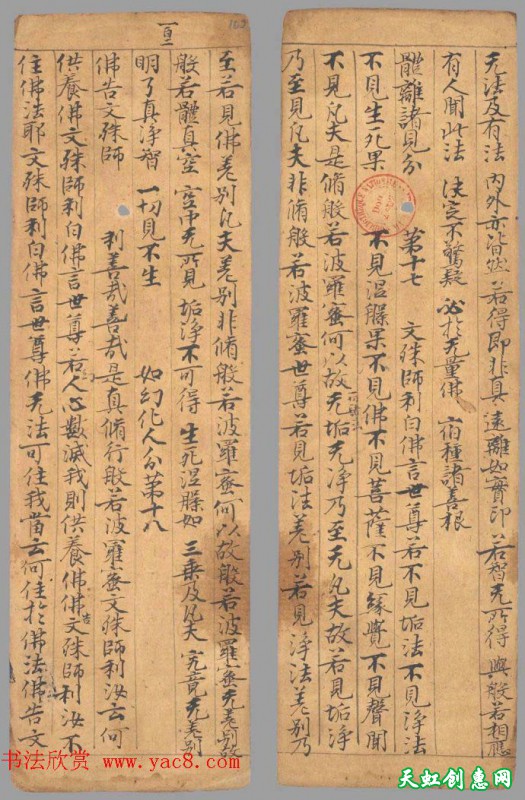 无法及有法 内外亦皆然 若得即非真 遠離如實印 若智无所得 與般若相應
有人聞此法 決定不驚疑 必於无量佛 宿種諸善根
體離諸見分 第十七 文殊師利白佛言世尊若不見垢法不見淨法
不見生死果 不見涅槃果不見佛不見菩薩不見緣覺不見聲聞
不見凡夫是脩般若波羅蜜何以故无垢无淨乃至无凡夫故若見垢淨
乃至見凡夫非脩般若波羅蜜世尊若見垢法差别若見淨法差别乃
至若見佛差别凡夫差别非脩般若波羅蜜何以故般若波羅蜜无差别故
般若體真空 空中无所見 垢淨不可得 生死涅槃如 三乘及凡夫 究竟无差别
明了真淨智 一切見不生 如幻化人分第十八
佛告文殊師 利善哉善哉是真脩行般若波羅蜜文殊師利汝云何
供養佛文殊師利白佛言世尊若人心數滅我則供養佛佛告文殊師利汝不
住佛法耶文殊師利白佛言世尊佛无法可住我當云何住於佛法佛告文
书法欣赏
www.yac8.com
天虹创意网